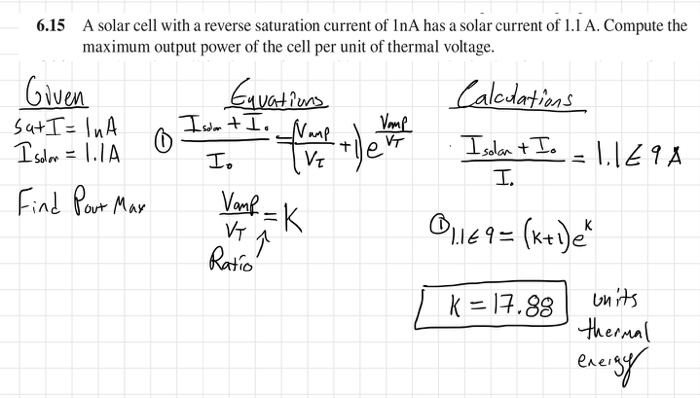 6.15 A solar cell with a reverse saturation current of 1nA has a solar current of 1.1 A. Compute the
maximum output power of the cell per unit of thermal voltage.
Given
Sat I = 1nA
I solar = 1.1A
Find Pout Max
Equations
① (I solar + I₀) / I₀ = (Vamp / VT + 1) e^(Vamp / VT)
Vamp / VT = K
Ratio
Calculations
(I solar + I₀) / I₀ = 1.1E9 A
① 1.1E9 = (K+1)e^K
K = 17.88
units
thermal
energy